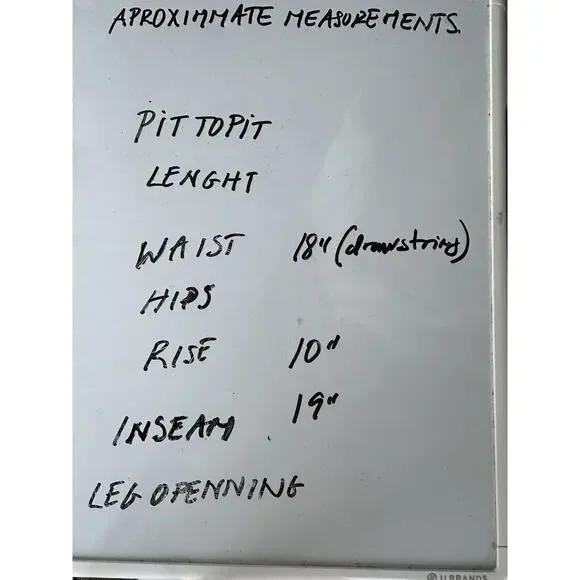 APROXIMMATE MEASUREMENTS.
PIT TO PIT
LENGHT
WAIST 18" (drawstring)
HIPS
RISE 10"
INSEAM 19"
LEG OPENNING
U BRANDS